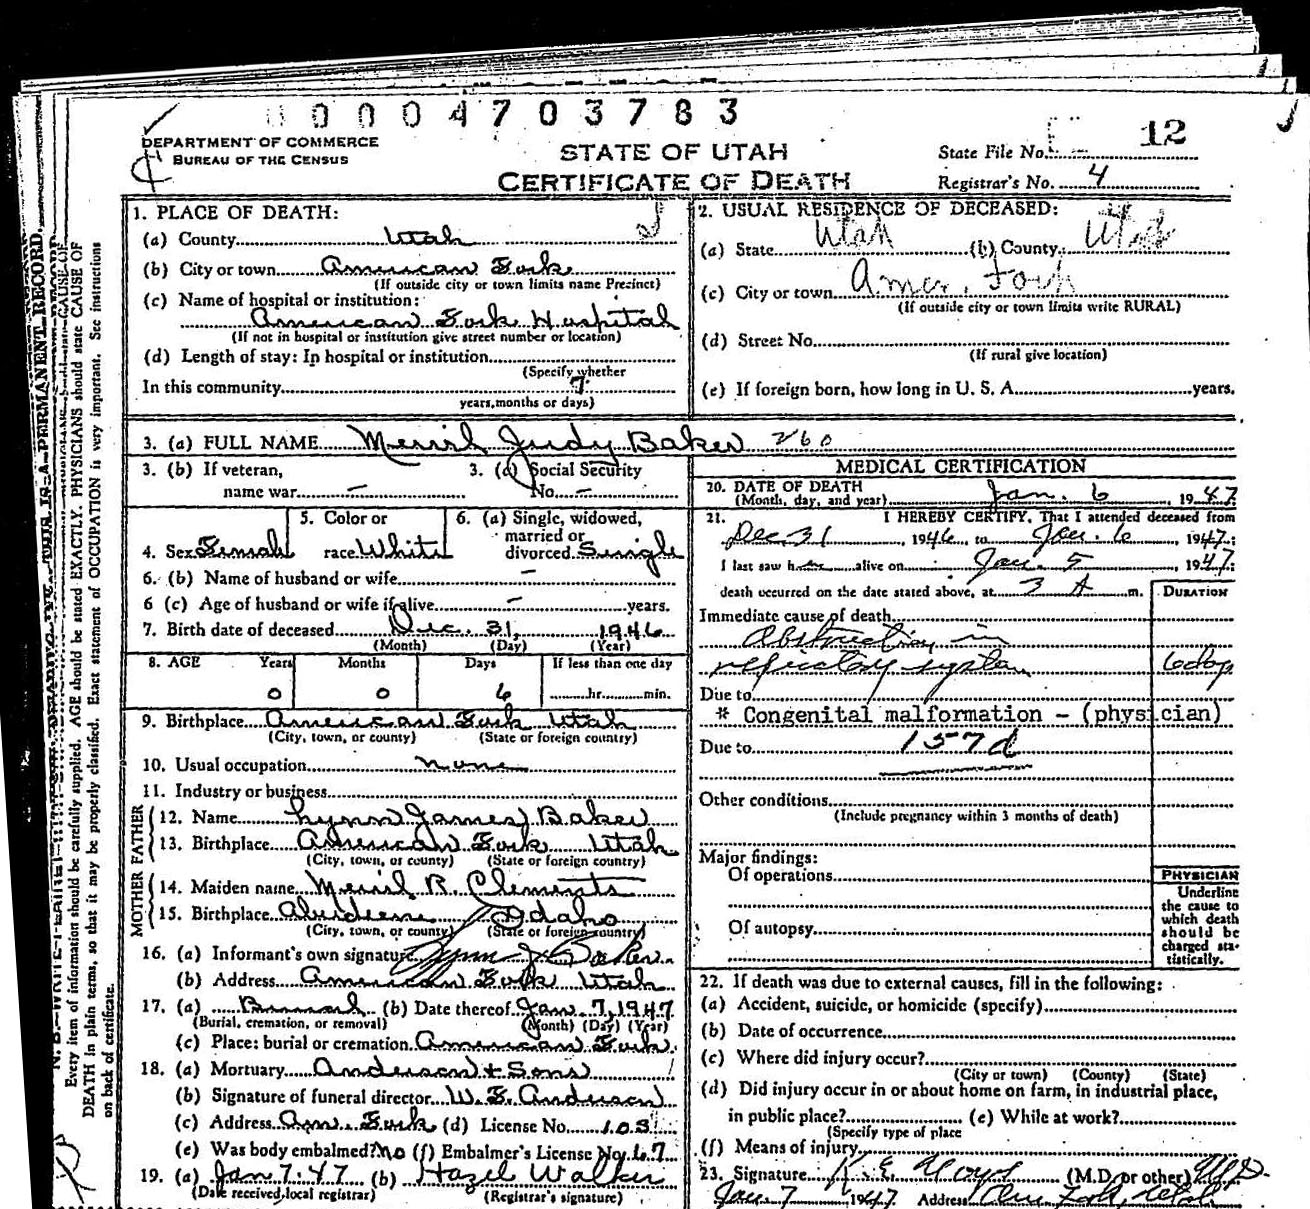 0 0 0 0 4 7 0 3 7 8 3
DEPARTMENT OF COMMERCE
BUREAU OF THE CENSUS
STATE OF UTAH
CERTIFICATE OF DEATH
State File No. 12
Registrar's No. 4
1. PLACE OF DEATH:
(a) County Utah
(b) City or town American Fork
(If outside city or town limits name Precinct)
(c) Name of hospital or institution:
American Fork Hospital
(If not in hospital or institution give street number or location)
(d) Length of stay: In hospital or institution
(Specify whether
In this community 7
years, months or days)
2. USUAL RESIDENCE OF DECEASED:
(a) State Utah (b) County Utah
(c) City or town Amer. Fork
(If outside city or town limits write RURAL)
(d) Street No.
(If rural give location)
(e) If foreign born, how long in U. S. A. years.
3. (a) FULL NAME Merril Judy Baker 260
3. (b) If veteran, 3. (c) Social Security
name war — No. —
5. Color or 6. (a) Single, widowed,
married or
4. Sex Female race White divorced Single
6. (b) Name of husband or wife —
6 (c) Age of husband or wife if alive — years.
7. Birth date of deceased Dec. 31, 1946
(Month) (Day) (Year)
8. AGE Years Months Days If less than one day
0 0 6 hr. min.
9. Birthplace American Fork Utah
(City, town, or county) (State or foreign country)
10. Usual occupation none
11. Industry or business
FATHER
12. Name Lynn James Baker
13. Birthplace American Fork Utah
(City, town, or county) (State or foreign country)
MOTHER
14. Maiden name Merril R. Clements
15. Birthplace Idaho
(City, town, or county) (State or foreign country)
16. (a) Informant's own signature Lynn J. Baker
(b) Address American Fork Utah
17. (a) Burial (b) Date thereof Jan. 7, 1947
(Burial, cremation, or removal) (Month) (Day) (Year)
(c) Place: burial or cremation American Fork.
18. (a) Mortuary Anderson & Sons
(b) Signature of funeral director W. E. Anderson
(c) Address Am. Fork (d) License No. 103
(e) Was body embalmed? no (f) Embalmer's License No. 67
19. (a) Jan 7. 47 (b) Hazel Walker
(Date received local registrar) (Registrar's signature)
MEDICAL CERTIFICATION
20. DATE OF DEATH
(Month, day, and year) Jan. 6, 1947
21. I HEREBY CERTIFY, That I attended deceased from
Dec. 31, 1946, to Jan. 6, 1947;
I last saw her alive on Jan. 5 1947;
death occurred on the date stated above, at 3 A m.
DURATION
Immediate cause of death
Obstruction in
system 6 days
Due to
* Congenital malformation - (physician)
Due to 157d
Other conditions
(Include pregnancy within 3 months of death)
Major findings:
Of operations
Of autopsy
PHYSICIAN
Underline
the cause to
which death
should be
charged sta-
tistically.
22. If death was due to external causes, fill in the following:
(a) Accident, suicide, or homicide (specify)
(b) Date of occurrence
(c) Where did injury occur?
(City or town) (County) (State)
(d) Did injury occur in or about home on farm, in industrial place,
in public place? (e) While at work?
(Specify type of place
(f) Means of injury
23. Signature (M.D. or other) M.D.
Jan. 7 1947 Address Am. Fork, Utah
Every item of information should be carefully supplied. AGE should be stated EXACTLY. PHYSICIANS should state CAUSE OF
DEATH in plain terms, so that it may be properly classified. Exact statement of OCCUPATION is very important. See instructions
on back of certificate.